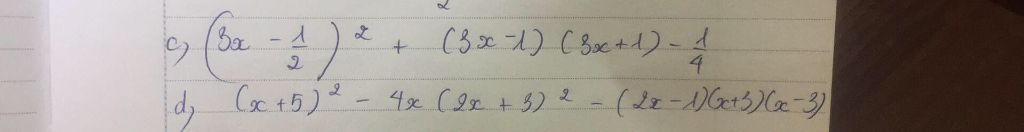 c) (3x - 1/2)² + (3x-1)(3x+1) - 1/4
d) (x+5)² - 4x(2x+3)² - (2x-1)(x+3)(x-3)